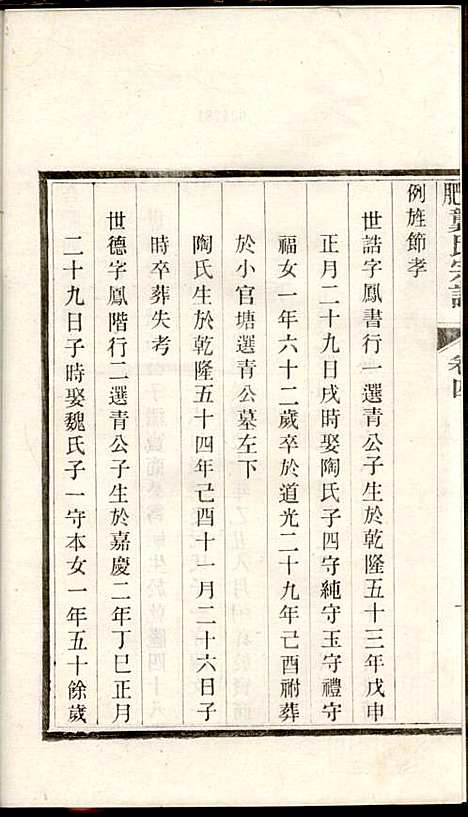 肥龔氏宗譜
卷四
例旌節孝
世誥字鳳書行一選青公子生於乾隆五十三年戊申
正月二十九日戌時娶陶氏子四守純守玉守禮守
福女一年六十二歲卒於道光二十九年己酉祔葬
於小官塘選青公墓左下
陶氏生於乾隆五十四年己酉十一月二十六日子
時卒葬失考
世德字鳳階行二選青公子生於嘉慶二年丁巳正月
二十九日子時娶魏氏子一守本女一年五十餘歲